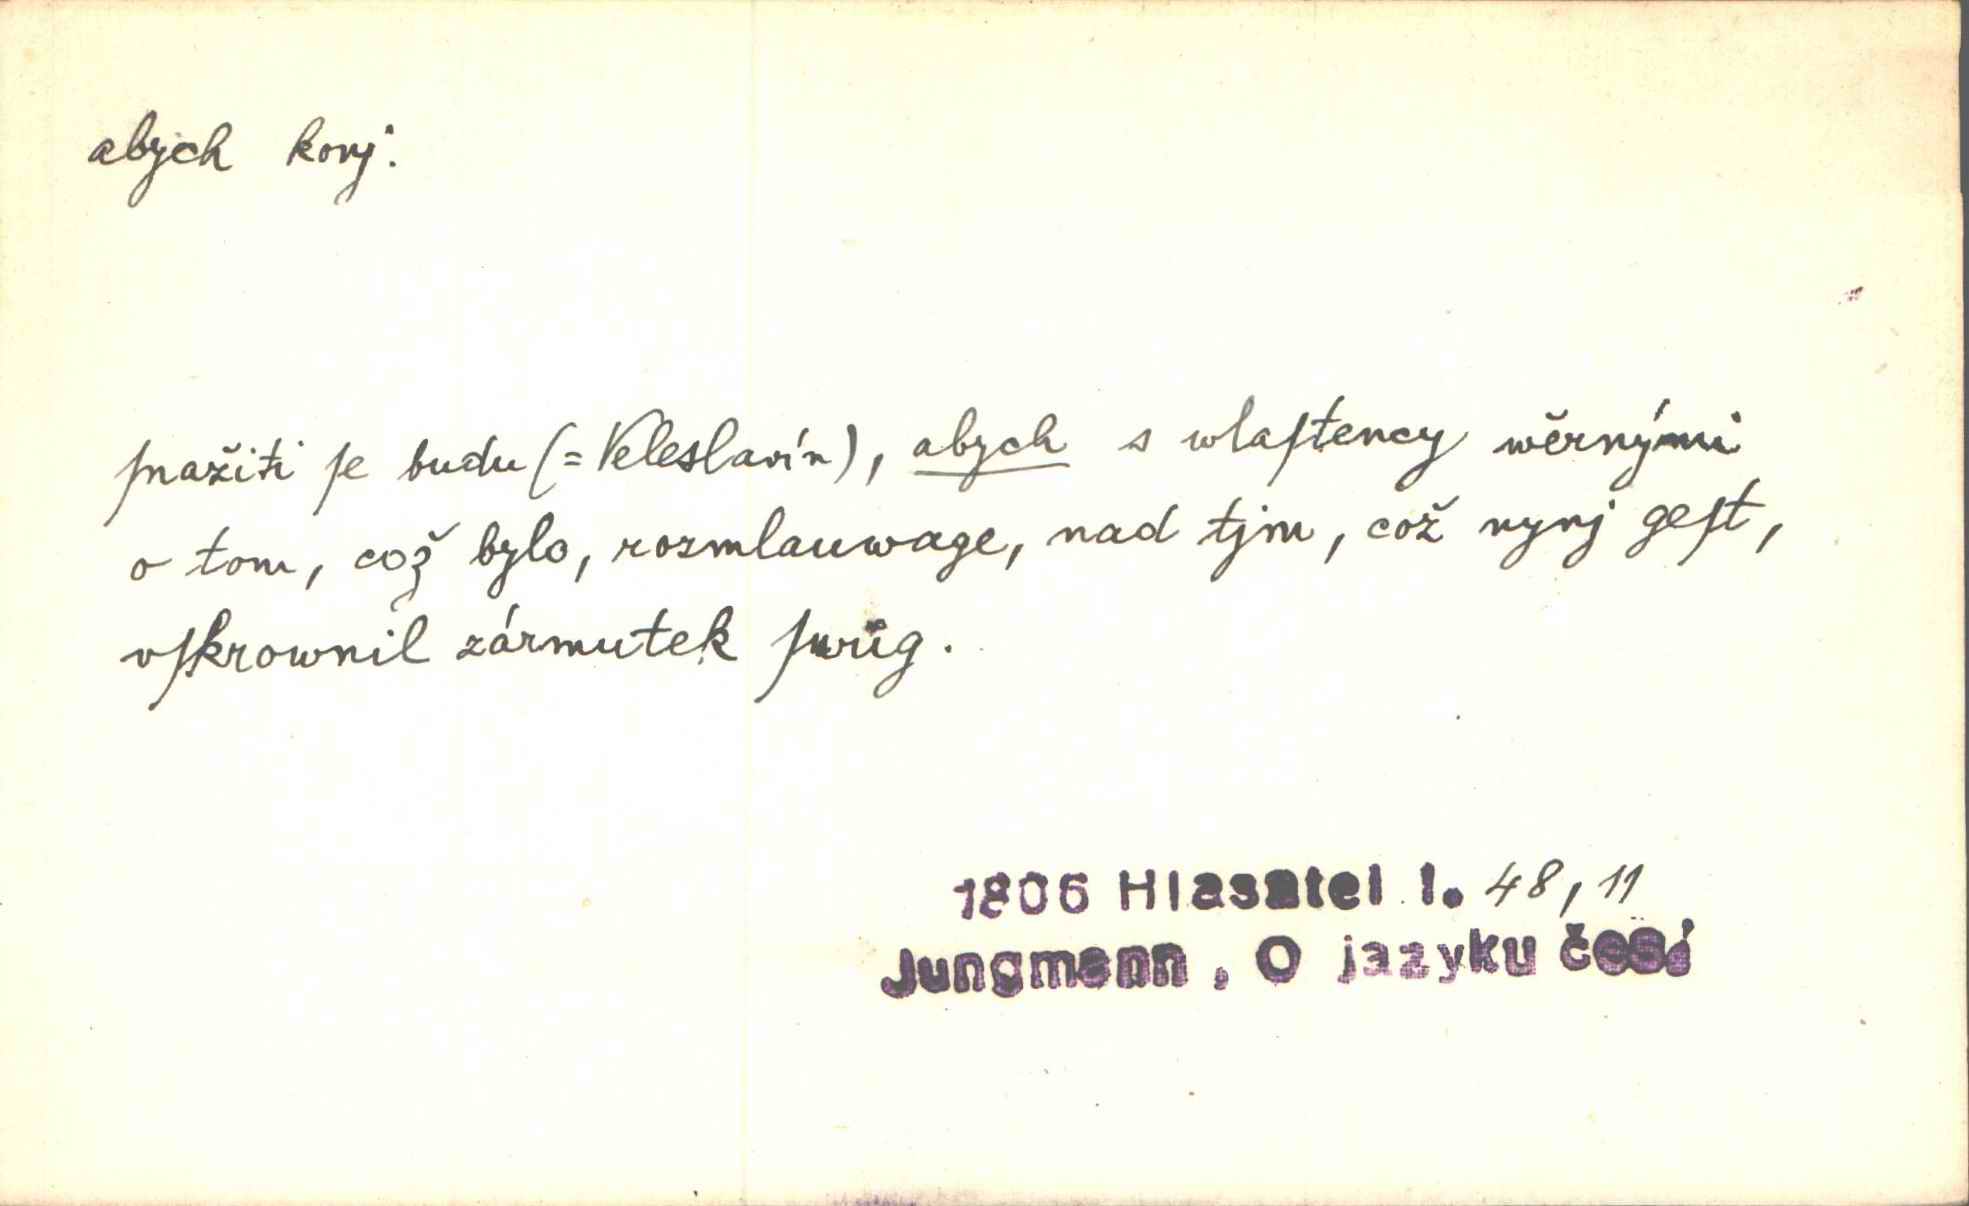 abych konj.
ſnažiti ſe budu (= Veleslavín), abych s wlaſtency wěrnými
o tom, což bylo, rozmlauwage, nad tjm, což nynj geſt,
vſkrownil zármutek ſwůg.
1806 Hlasatel I. 48, 11
Jungmann, O jazyku čes.